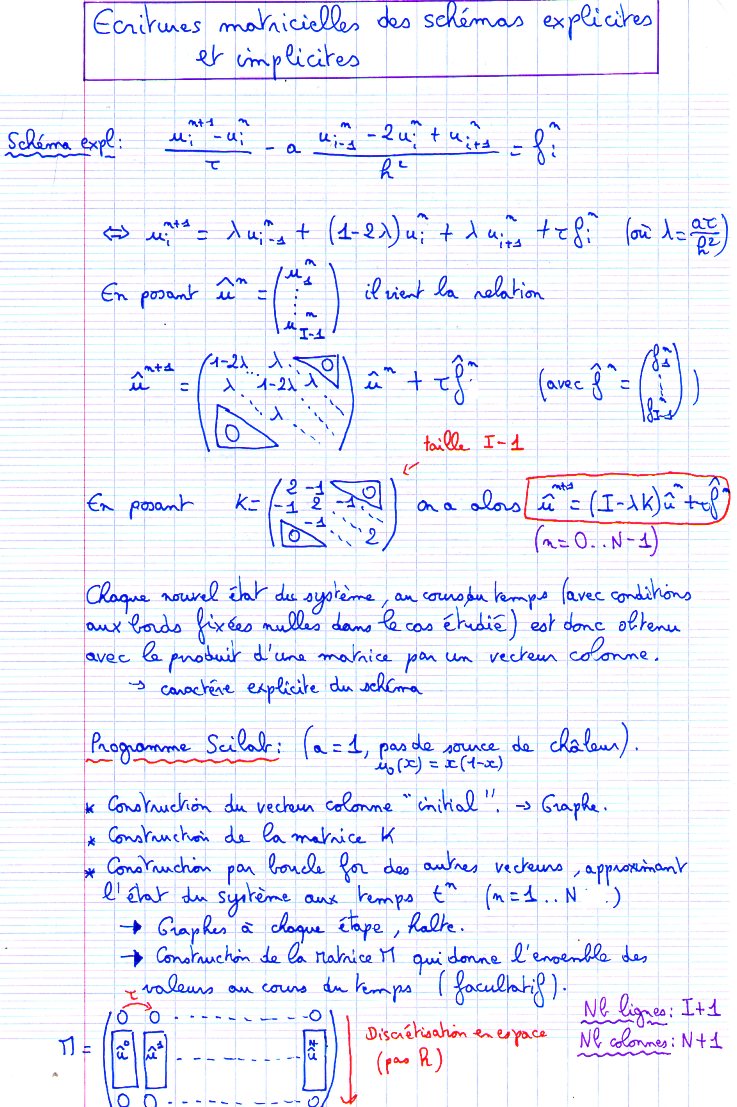 Ecritures matricielles des schémas explicites
et implicites
Schéma expl: (u_i^{n+1} - u_i^n)/τ - a (u_{i-1}^n - 2u_i^n + u_{i+1}^n)/h² = f_i^n
⇔ u_i^{n+1} = λu_{i-1}^n + (1-2λ)u_i^n + λu_{i+1}^n + τf_i^n (où λ = aτ/h²)
En posant û^n = (u_1^n ⋮ u_{I-1}^n) il vient la relation
û^{n+1} = (1-2λ λ 0 λ 1-2λ λ 0 λ) û^n + τf̂^n (avec f̂^n = (f_1^n ⋮ f_{I-1}^n))
taille I-1
En posant K = (2 -1 0 -1 2 -1 0 -1 2) on a alors û^{n+1} = (I-λK)û^n + τf̂^n
(n=0..N-1)
Chaque nouvel état du système, au cours du temps (avec conditions
aux bords fixées nulles dans le cas étudié) est donc obtenu
avec le produit d'une matrice par un vecteur colonne.
→ caractère explicite du schéma
Programme Scilab: (a=1, pas de source de châleur).
u_0(x) = x(1-x)
* Construction du vecteur colonne "initial". → Graphe.
* Construction de la matrice K
* Construction par boucle for des autres vecteurs, approximant
l'état du système aux temps t^n (n=1..N)
→ Graphes à chaque étape, halte.
→ Construction de la matrice M qui donne l'ensemble des
valeurs au cours du temps (facultatif).
τ
M = (0 0 ---- 0 û^0 û^1 ---- û^N 0 0 ---- 0)
Discrétisation en espace
(pas h)
Nb lignes: I+1
Nb colonnes: N+1